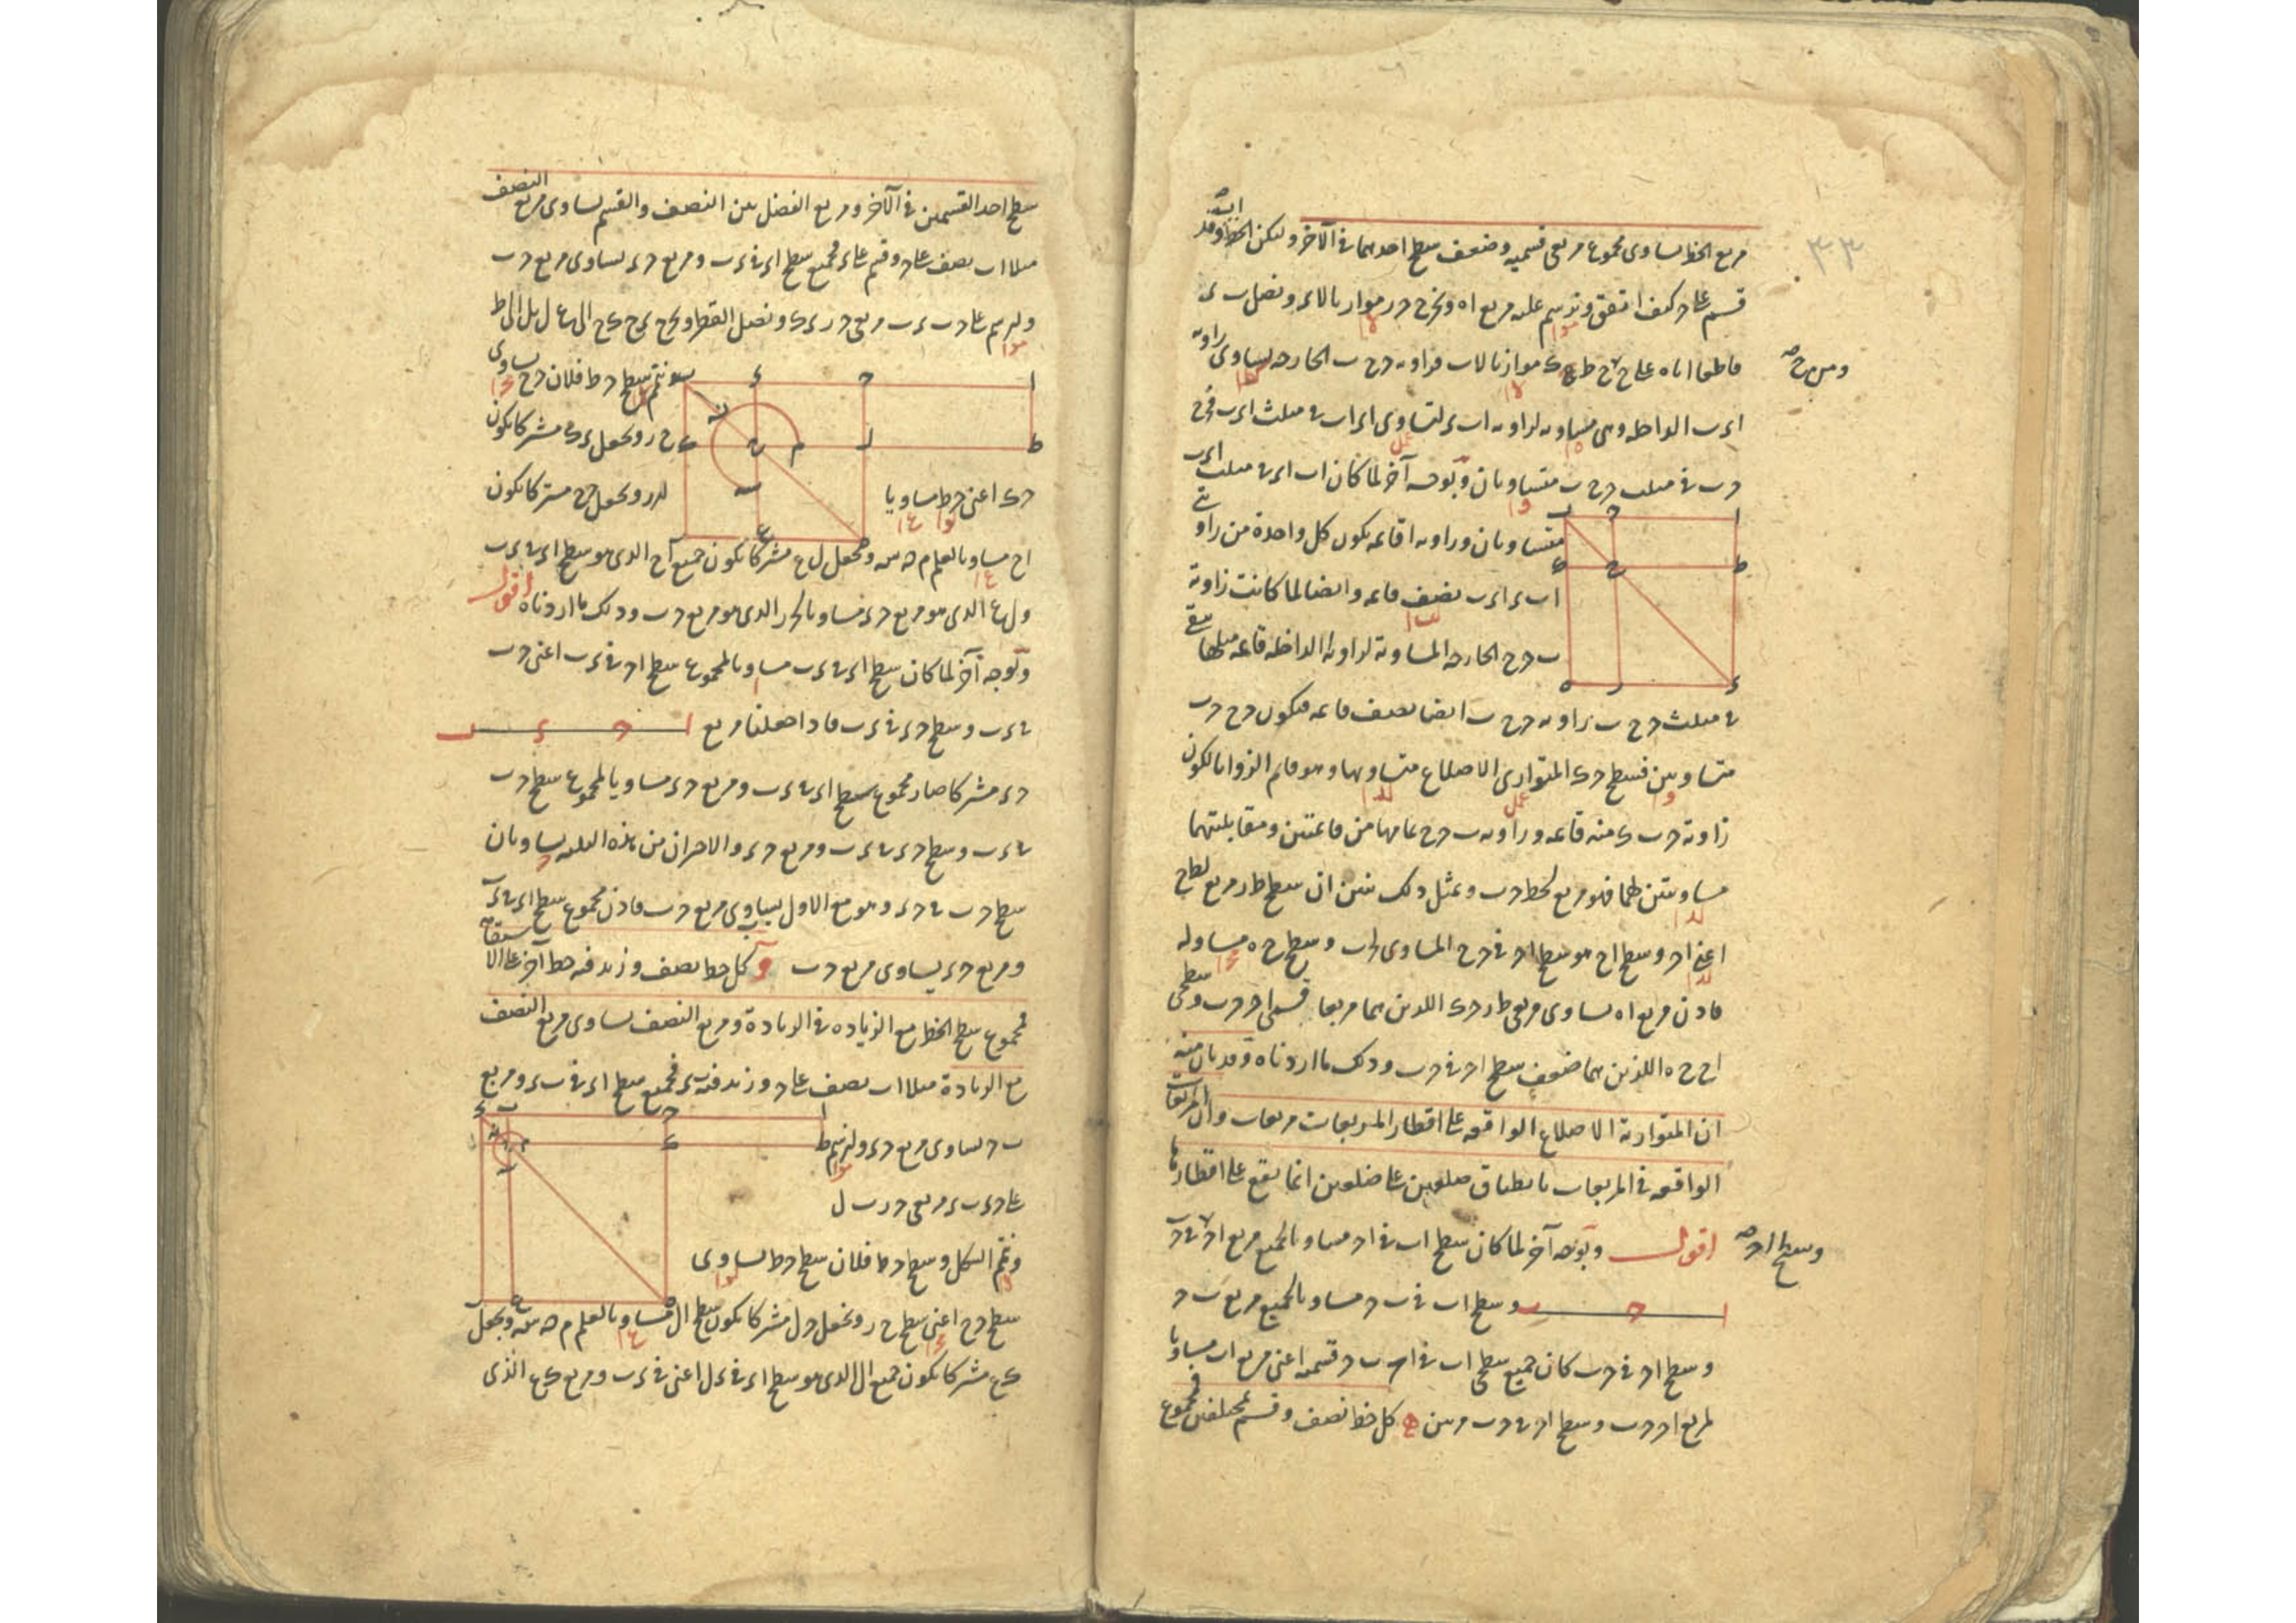 مربع الخط يساوى مجموع مربعى قسميه وضعف سطح احدهما فى الآخر وليكن الخط اب وقد
قسم على ح كيف اتفق ونرسم عليه مربع اه ونخرج حر موازيا لاء ونصل ب ء
قاطعا اياه على ح و ط ح ك موازيا لاب فزاويه ح ح ب الخارجه يساوى زاويه
اء ب الداخله وهى مساويه لزاويه اب ء لتساوى اء اب فى مثلث اء ب فح ح
ح ب فى مثلث ح ح ب متساويان وبوجه آخر لما كان اب اء فى مثلث اء ب
متساويان وزاويه ا قائمه يكون كل واحدة من زاويتى
اب ء اء ب نصف قائمه وايضا لما كانت زاوية
ب ح ح الخارجه المساوية لزاوية ا الداخله قائمه مثلها بقى
فى مثلث ح ح ب زاويه ح ح ب ايضا نصف قائمه فيكون ح ح ح ب
متساويين فسطح ح ك المتوازى الاضلاع متساويها وهو قائم الزوايا لكون
زاوية ح ب ك منه قائمه وزاويه ب ح ح تمامها من قائمتين ومقابلتيهما
مساويتين لهما فهو مربع لخط ح ب وبمثل ذلك نبين ان سطح ط ر مربع لط ح
اعنى اح وسطح اح هو سطح اح فى ح ح المساوى لح ب وسطح ح ه مساو له
فاذن مربع اه يساوى مربعى ط ر ح ك اللذين هما مربعا قسمى اح ح ب وسطحى
اح ح ه اللذين هما ضعف سطح اح فى ح ب وذلك ما اردناه وقد بان منه
ان المتوازية الاضلاع الواقعه على اقطار المربعات مربعات وان المربعات
الواقعه فى المربعات بانطباق ضلعين على ضلعين انما يقع على اقطارها
اقول وبوجه آخر لما كان سطح اب فى اح مساويا لجميع مربع اح
وسطح اب فى ب ح مساويا لجميع مربع ب ح
وسطح اح فى ح ب كان جميع سطحى اب فى اح ب ح قسميه اعنى مربع اب مساويا
لمربع اح ح ب وسطح اح فى ح ب مرتين ه كل خط نصف وقسم بمختلفين فمجموع
سطح احد القسمين فى الآخر ومربع الفضل بين النصف والقسم يساوى مربع النصف
مثلا اب نصف على ح وقسم على ء فجميع سطح اء فى ء ب ومربع ح ء يساوى مربع ح ب
ونتمم سطح ح ط فلان ح ح يساوى
ح ر ونجعل ء ك مشتركا يكون
ح ك اعنى ح ط مساويا
لء ر ونجعل ح ح مشتركا يكون
اح مساويا لعلم م ن س ونجعل ل ع مشتركا يكون جميع اح الذى هو سطح اء فى ء ب
ول ع الذى هو مربع ح ء مساويا لح ر الذى هو مربع ح ب وذلك ما اردناه اقول
وبوجه آخر لما كان سطح اء فى ء ب مساويا لمجموع سطح اح فى ء ب اعنى ح ب
فى ء ب وسطح ح ء فى ء ب فاذا جعلنا مربع
ح ء مشتركا صار مجموع سطح اء فى ء ب ومربع ح ء مساويا لمجموع سطح ح ب
فى ء ب وسطح ح ء فى ء ب ومربع ح ء والاخيران من هذه الثلثه يساويان
سطح ح ب فى ح ء وهو مع الاول يساوى مربع ح ب فاذن مجموع سطح اء فى ء ب
ومربع ح ء يساوى مربع ح ب و كل خط نصف وزيد فيه خط آخر على الاستقامه
فمجموع سطح الخط مع الزيادة فى الزيادة ومربع النصف يساوى مربع النصف
مع الزيادة مثلا اب نصف على ح وزيد فيه ب ء فجميع سطح اء فى ب ء ومربع
ب ح يساوى مربع ح ء ولنرسم
على ح ء ب ء مربعى ح ر ب ل
ونتمم الشكل وسطح ح ط فلان سطح ح ط يساوى
سطح ح ح اعنى سطح ح ر ونجعل ح ل مشتركا يكون سطح ال مساويا لعلم م ن س ونجعل
ك ع مشتركا يكون جميع ال الذى هو سطح اء فى ء ل اعنى فى ء ب ومربع ك ع الذى